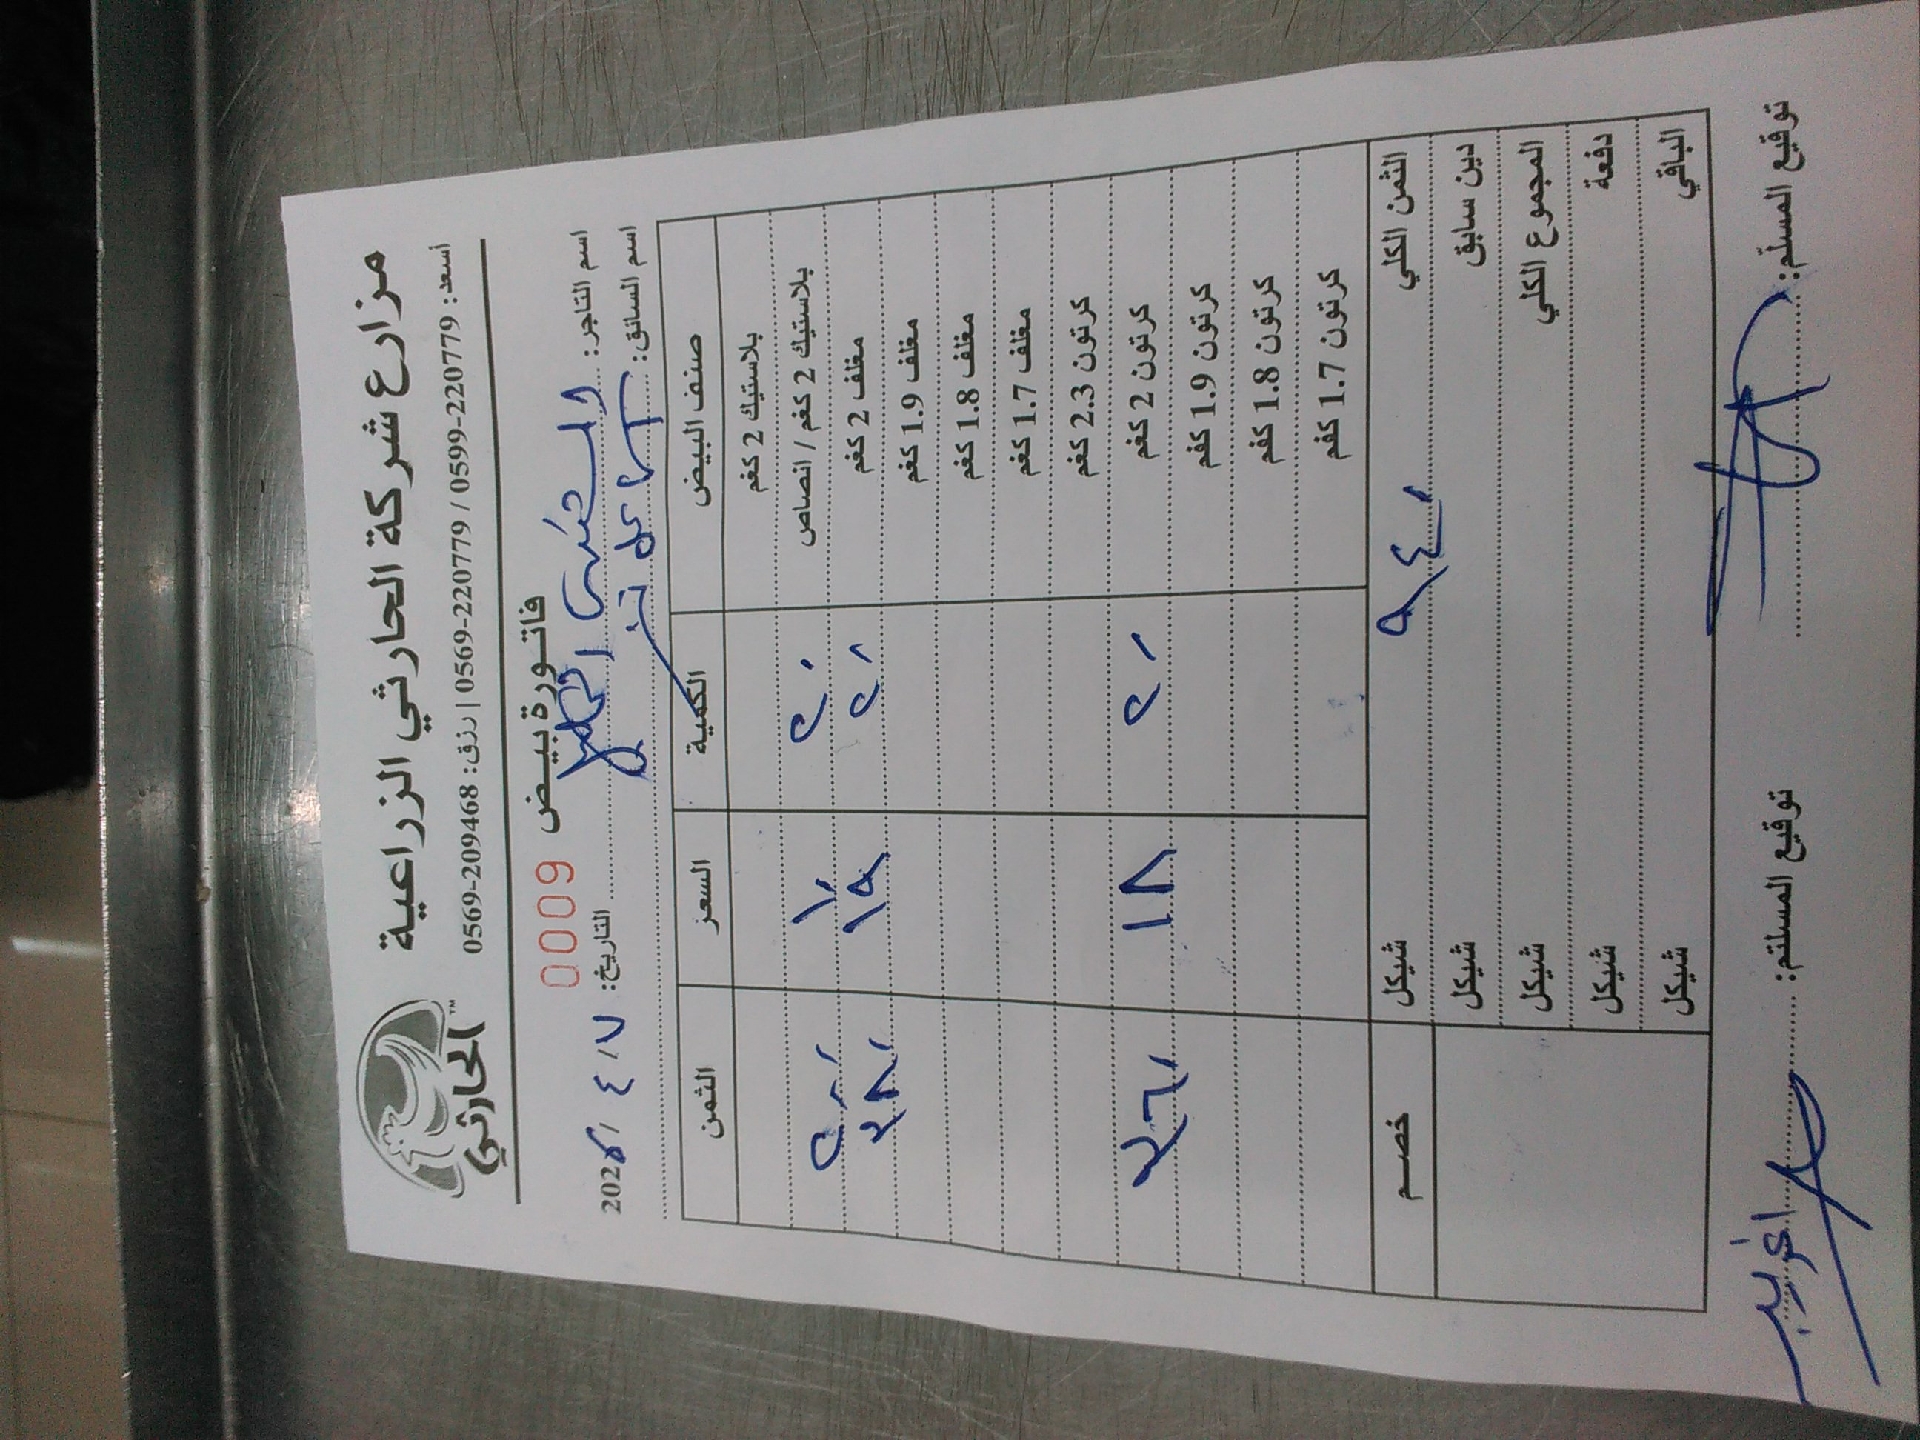 الحارثي™
مزارع شركة الحارثي الزراعية
أسعد: 0599-220779 / 0569-220779 | رزق: 0569-209468
فاتورة بيض 0009
اسم التاجر: التاريخ: ٧ / ٤ / 202
اسم السائق:
صنف البيض الكمية السعر الثمن
بلاستيك 2 كغم
بلاستيك 2 كغم / انصاص ٢٠ ١٠ ٢٠٠
مغلف 2 كغم ٢٠ ١٩ ٣٨٠
مغلف 1.9 كغم
مغلف 1.8 كغم
مغلف 1.7 كغم
كرتون 2.3 كغم
كرتون 2 كغم ٢٠ ١٨ ٣٦٠
كرتون 1.9 كغم
كرتون 1.8 كغم
كرتون 1.7 كغم
الثمن الكلي ٩٤٠ شيكل خصم
دين سابق شيكل
المجموع الكلي شيكل
دفعة شيكل
الباقي شيكل
توقيع المسلم: توقيع المستلم: